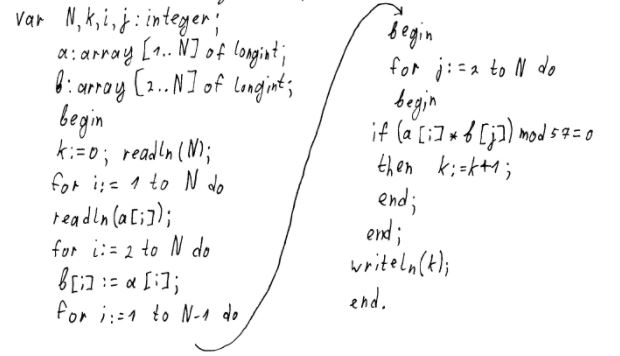 var N,k,i,j:integer;
a:array [1..N] of longint;
b:array [2..N] of longint;
begin
k:=0; readln(N);
for i:=1 to N do
readln(a[i]);
for i:=2 to N do
b[i]:=a[i];
for i:=1 to N-1 do
begin
for j:=2 to N do
begin
if (a[i]*b[j])mod 57=0
then k:=k+1;
end;
end;
writeln(k);
end.